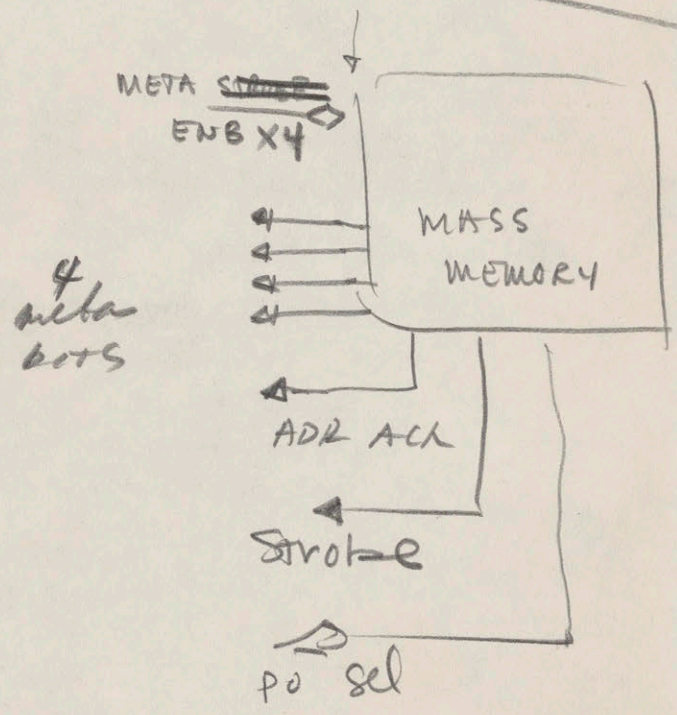 META
ENB X4
MASS
MEMORY
4
meta
bots
ADR ACK
Strobe
po sel